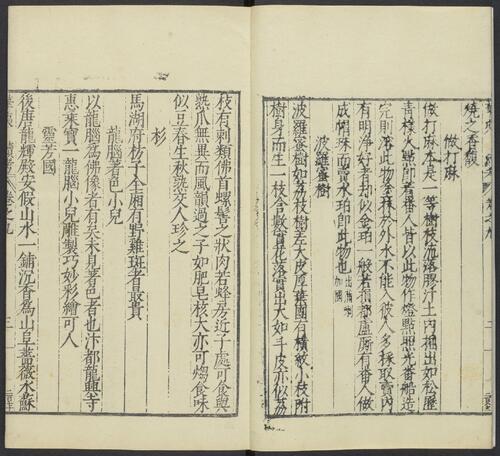 燒之香馥
做打麻
做打麻本是一等樹枝流落膠汁土內掘出如松瀝
青樣火點即着番人皆以此物作燈點照光番船造
完則溶此物塗抹於外水不能入彼人多採取賣內
有明淨好者却似金珀一般名損都盧廝有番人做
成帽珠而賣水珀即此物也出滿剌加國
波羅蜜樹
波羅蜜樹如荔枝樹差大皮厚葉圓有橫紋小枝附
樹身而生一枝含數實花落實出大如斗皮亦似荔
枝有刺類佛首螺髻之狀肉若蜂房近子處可食與
熟瓜無異而風韻過之子如肥皂核大亦可煼食味
似豆春生秋熟交人珍之
杉
馬湖府枋子全廂有野雞斑者最貴
龍腦著色小兒
以龍腦為佛像者有矣未見著色者也汴都龍興寺
惠乘寶一龍腦小兒雕製巧妙彩繪可人
靈芳國
後唐龍輝殿安假山水一鋪沉香為山阜薔薇水蘇